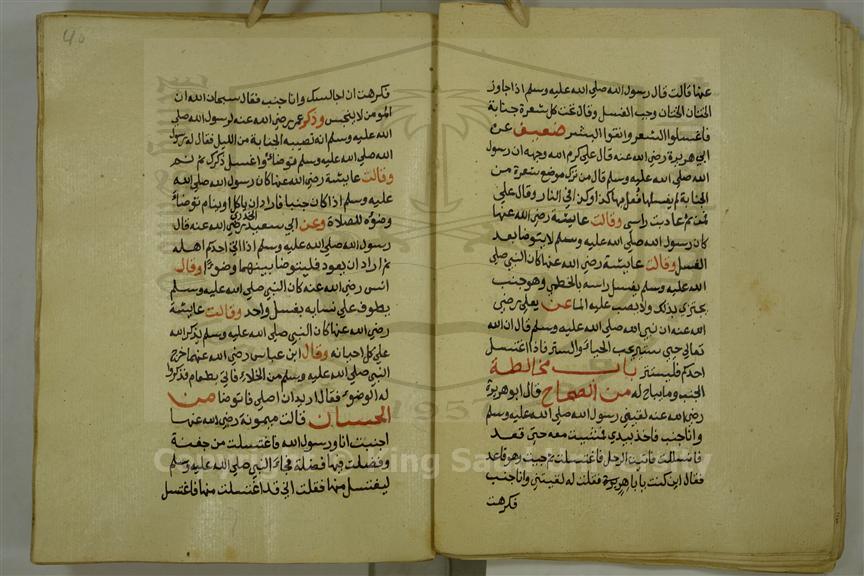 عنها قالت قال رسول الله صلى الله عليه وسلم اذا جاوز
الختان الختان وجب الغسل وقال تحت كل شعرة جنابة
فاغسلوا الشعر وانقوا البشر ضعيف عن
ابي هريرة رضى الله عنه قال على كرم الله وجهه ان رسول
الله صلى الله عليه وسلم قال من ترك موضع شعرة من
الجنابة لم يغسلها فعل بها كذا وكذا في النار وقال على
فمن ثم عاديت راسى وقالت عايشة رضى الله عنها
كان رسول الله صلى الله عليه وسلم لا يتوضا بعد
الغسل وقالت عايشة رضى الله عنها كان النبي صلى
الله عليه وسلم يغسل راسه بالخطمي وهو جنب
يجتزى بذلك ولا يصب عليه الما عن يعلى رضى
الله عنه ان نبى الله صلى الله عليه وسلم قال ان الله
تعالى حيي ستير يحب الحياء والستر فاذا اغتسل
احدكم فليستتر باب مخالطة
الجنب وما يباح له من الصحاح قال ابو هريرة
رضى الله عنه لقيني رسول الله صلى الله عليه وسلم
وانا جنب فاخذ بيدي فمشيت معه حتى قعد
فانسللت فاتيت الرحل فاغتسلت ثم جيت وهو قاعد
فقال اين كنت يا ابا هريرة فقلت له لقيتني وانا جنب
فكرهت
40
فكرهت ان اجالسك وانا جنب فقال سبحان الله ان
المومن لا ينجس وذكر عمر رضي الله عنه لرسول الله صلى
الله عليه وسلم انه تصيبه الجنابة من الليل فقال له رسول
الله صلى الله عليه وسلم توضا واغسل ذكرك ثم نم
وقالت عايشة رضى الله عنها كان رسول الله صلى الله
عليه وسلم اذا كان جنبا فاراد ان ياكل او ينام توضا
وضوه للصلاة وعن ابى سعيد الخدري رضى الله عنه قال
رسول الله صلى الله عليه وسلم اذا اتى احدكم اهله
ثم اراد ان يعود فليتوضا بينهما وضوءا وقال
انس رضى الله عنه كان النبي صلى الله عليه وسلم
يطوف على نسايه بغسل واحد وقالت عايشة
رضى الله عنها كان النبي صلى الله عليه وسلم يذكر الله
على كل احيانه وقال ابن عباس رضى الله عنهما خرج
النبي صلى الله عليه وسلم من الخلاء فاتى بطعام فذكروا
له الوضوء فقال اريد ان اصلى فاتوضا من
الحسان قالت ميمونة رضى الله عنها
اجنبت انا ورسول الله فاغتسلت من جفنة
وفضلت فيها فضلة فجاء النبي صلى الله عليه وسلم
ليغتسل منها فقلت انى قد اغتسلت منها فاغتسل
1957
Copyright © King Saud University